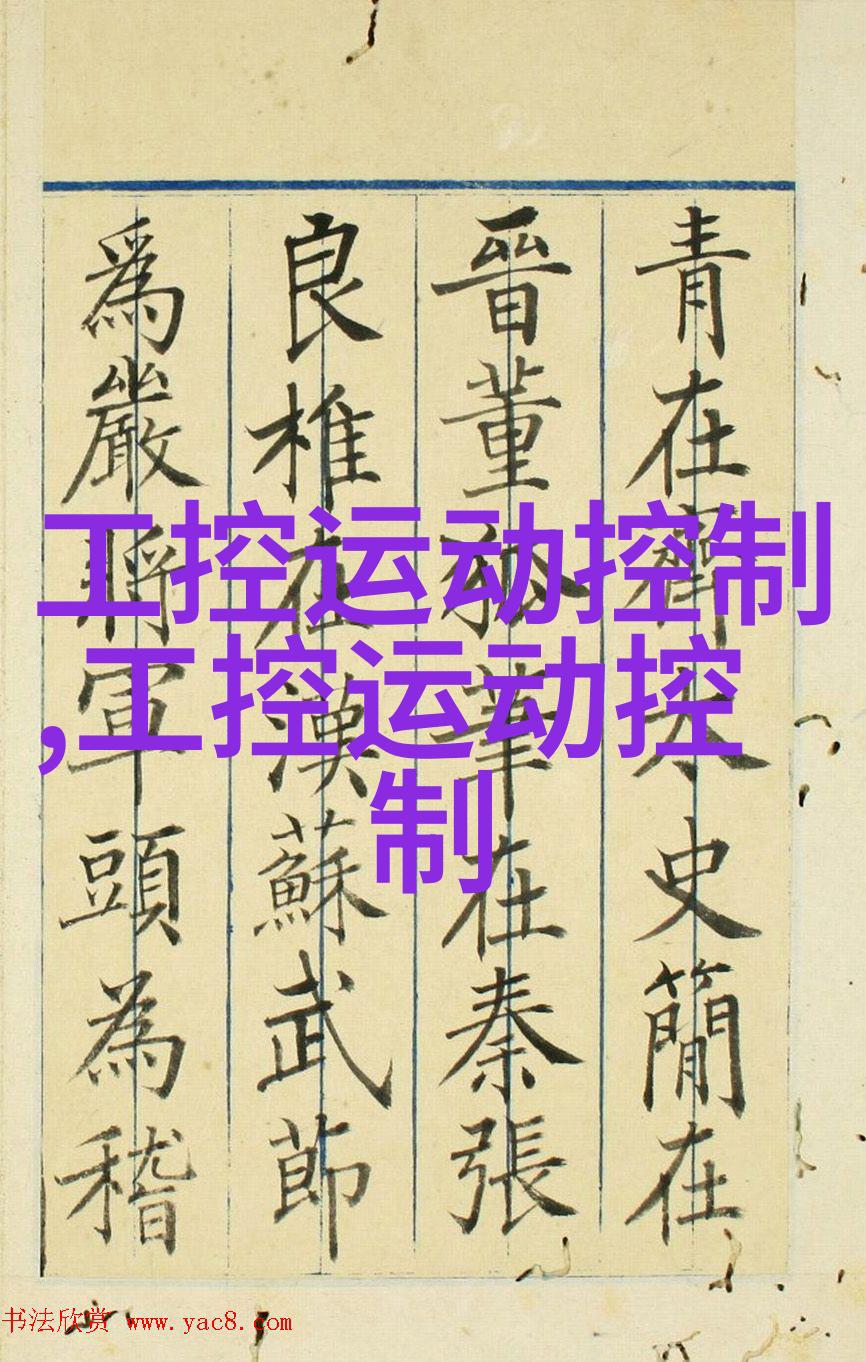 青在齊太史簡在
晉董狐筆在秦張
良椎在漢蘇武節
為嚴將軍頭為嵇
工控运动控制
,工控运动控
制
书法欣赏 www.yac8.com